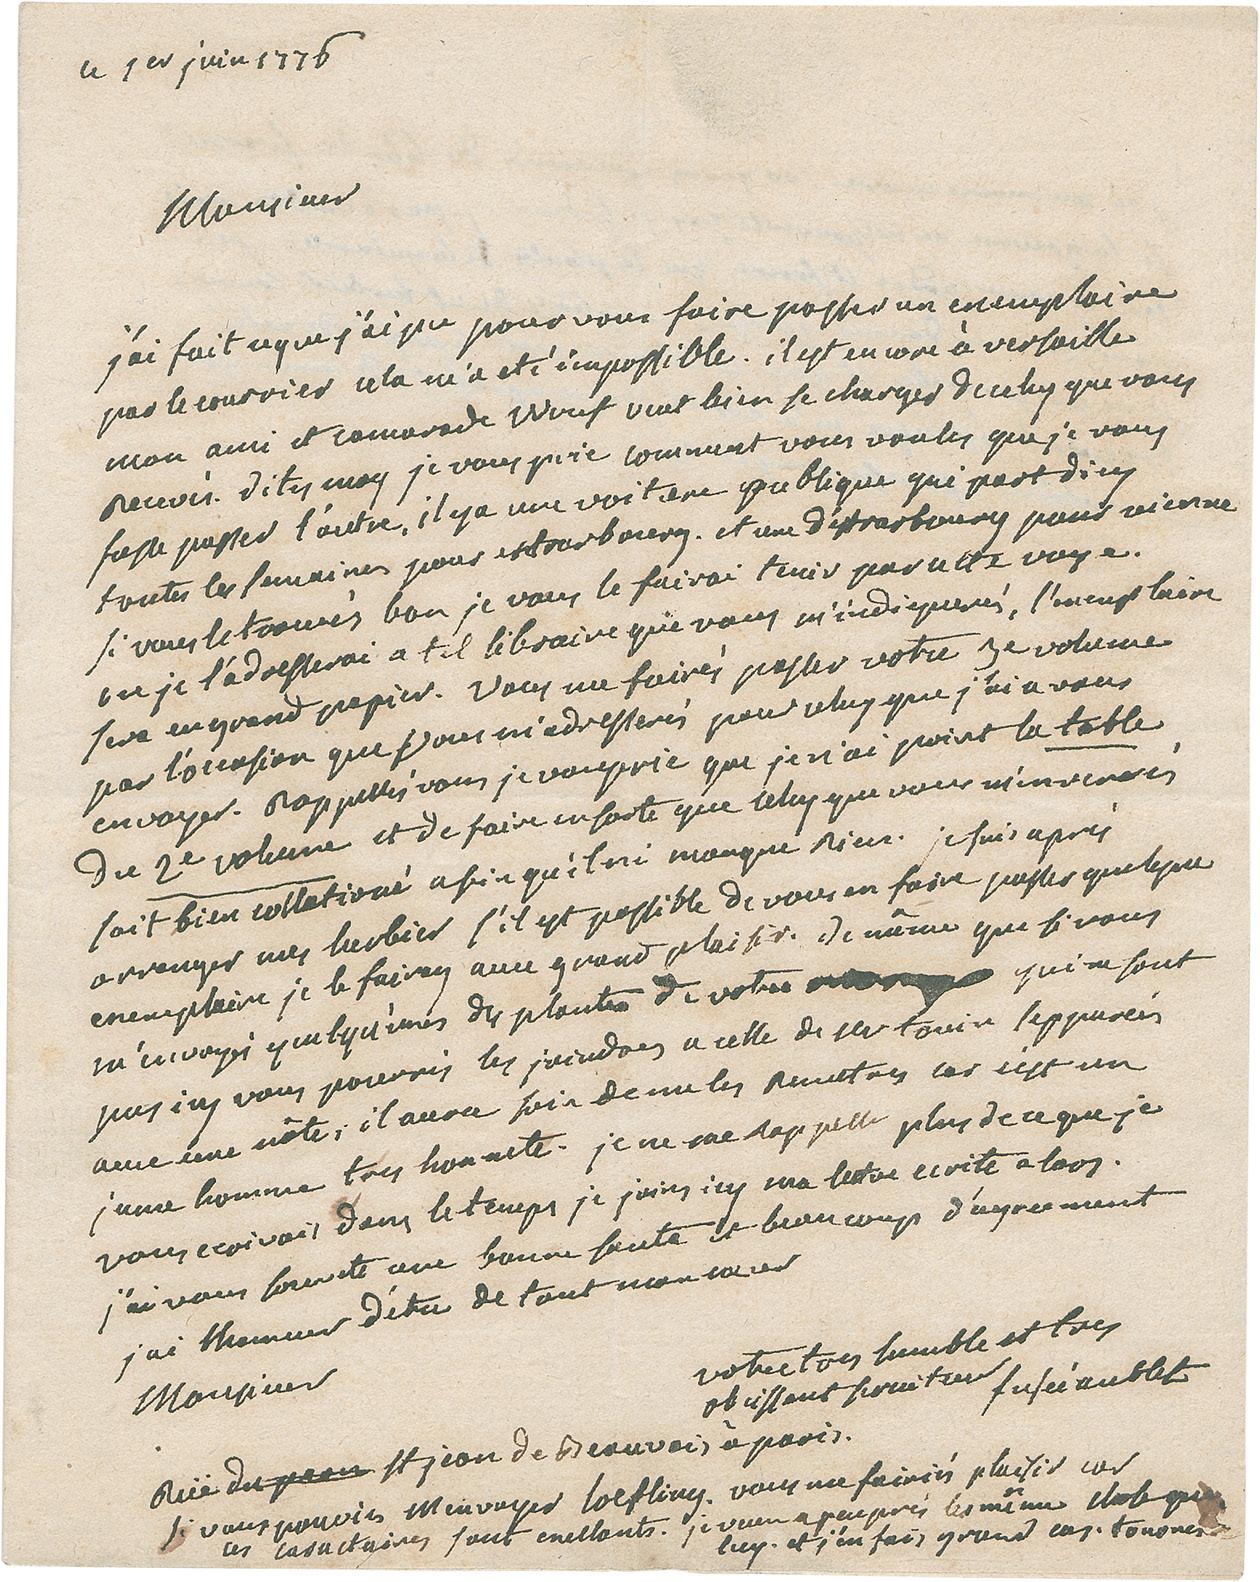 ce 1er juin 1776
Monsieur
j'ai fait ce que j'ai pu pour vous faire passer un exemplaire
par le courrier cela m'a eté impossible. il est encore à versaille
mon ami et camarade veut bien se charger de celuy que vous
recevés. dites moy je vous prie comment vous voulés que je vous
fasse passer l'autre, il y a une voiture publique qui part d'icy
toutes les semaines pour strasbourg. et une de strasbourg pour vienne
si vous le trouvés bon je vous le fairai tenir par cette voye.
ou je l'adresserai a tel libraire que vous m'indiquerés, l'exemplaire
sera en grand papier. vous me fairés passer votre 3e volume
par l'occasion que vous m'adresserés pour celuy que j'ai a vous
envoyer. Rappellés vous je vous prie que je n'ai point la table
du 2e volume et de faire en sorte que celuy que vous m'enverrés
soit bien collationé afin qu'il ni manque rien. je suis après
arranger mes herbier s'il est possible de vous en faire passer quelque
exemplaire je le fairay avec grand plaisir. de même que si vous
m'envoyés quelqu'unes des plantes de votre qui ne sont
pas icy vous pourrés les joindres a celle de touin separés
avec une nôte, il aura soin de me les remettres car c'est un
jeune homme tres honnete. je ne me rappelle plus de ce que je
vous ecrivois dans le temps je joins icy ma lettre ecrite alors.
j'ai vous souhaite une bonne santé et beaucoup d'agreement
j'ai l'honneur d'être de tout mon coeur
Monsieur
votre tres humble et tres
obeissant serviteur fuséé aublet
Rüe du st jean de Beauvais à paris.
si vous pouvés m'envoyer Loefling. vous me fairiés plaisir car
ces caracteres sont exellants. je vien a peu prés les même que
luy. et j'en fais grand cas.